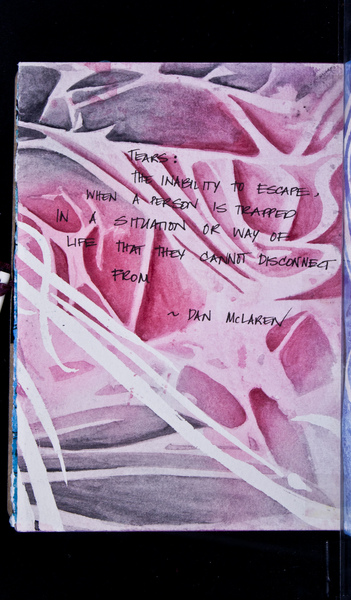 TEARS:
THE INABILITY TO ESCAPE,
WHEN A PERSON IS TRAPPED
IN A SITUATION OR WAY OF
LIFE THAT THEY CANNOT DISCONNECT
FROM
~ DAN MCLAREN